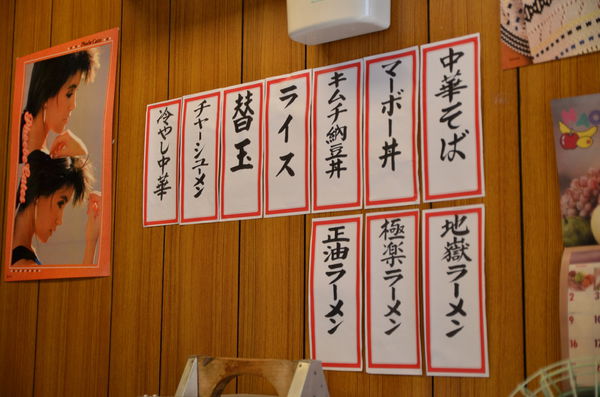 中華そば
マーボー丼
キムチ納豆丼
ライス
替玉
チャーシューメン
冷やし中華
地獄ラーメン
極楽ラーメン
正油ラーメン
2 3
9
16